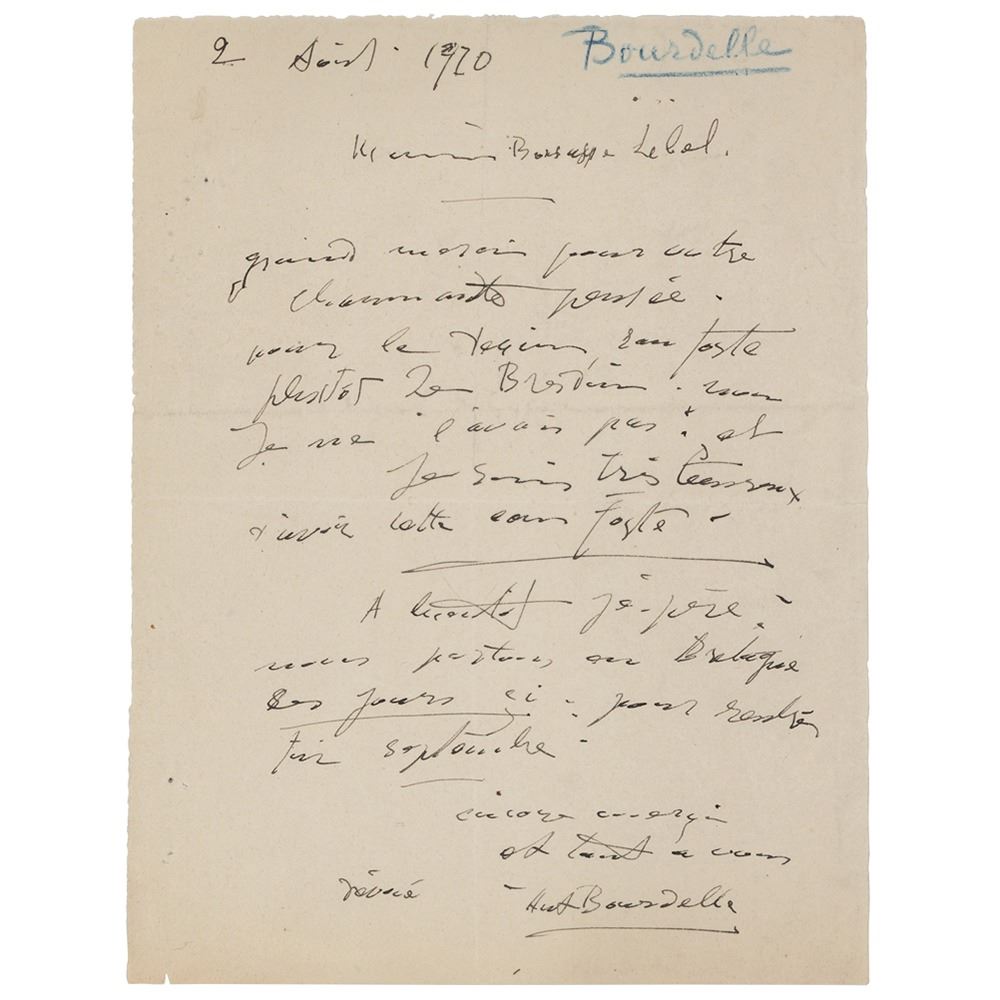 2 Août 1920 Bourdelle
Lebel.
grand merci pour votre
charmante pensée.
pour le dessin, eau forte
plutôt de Bresdin. non
Je ne l'avais pas. et
Je suis très heureux
d'avoir cette eau forte.
A bientôt j'espère.
nous partons en Bretagne
ces jours ci. pour rentrer
fin septembre
encore merci
et tout a vous
dévoué Ant Bourdelle